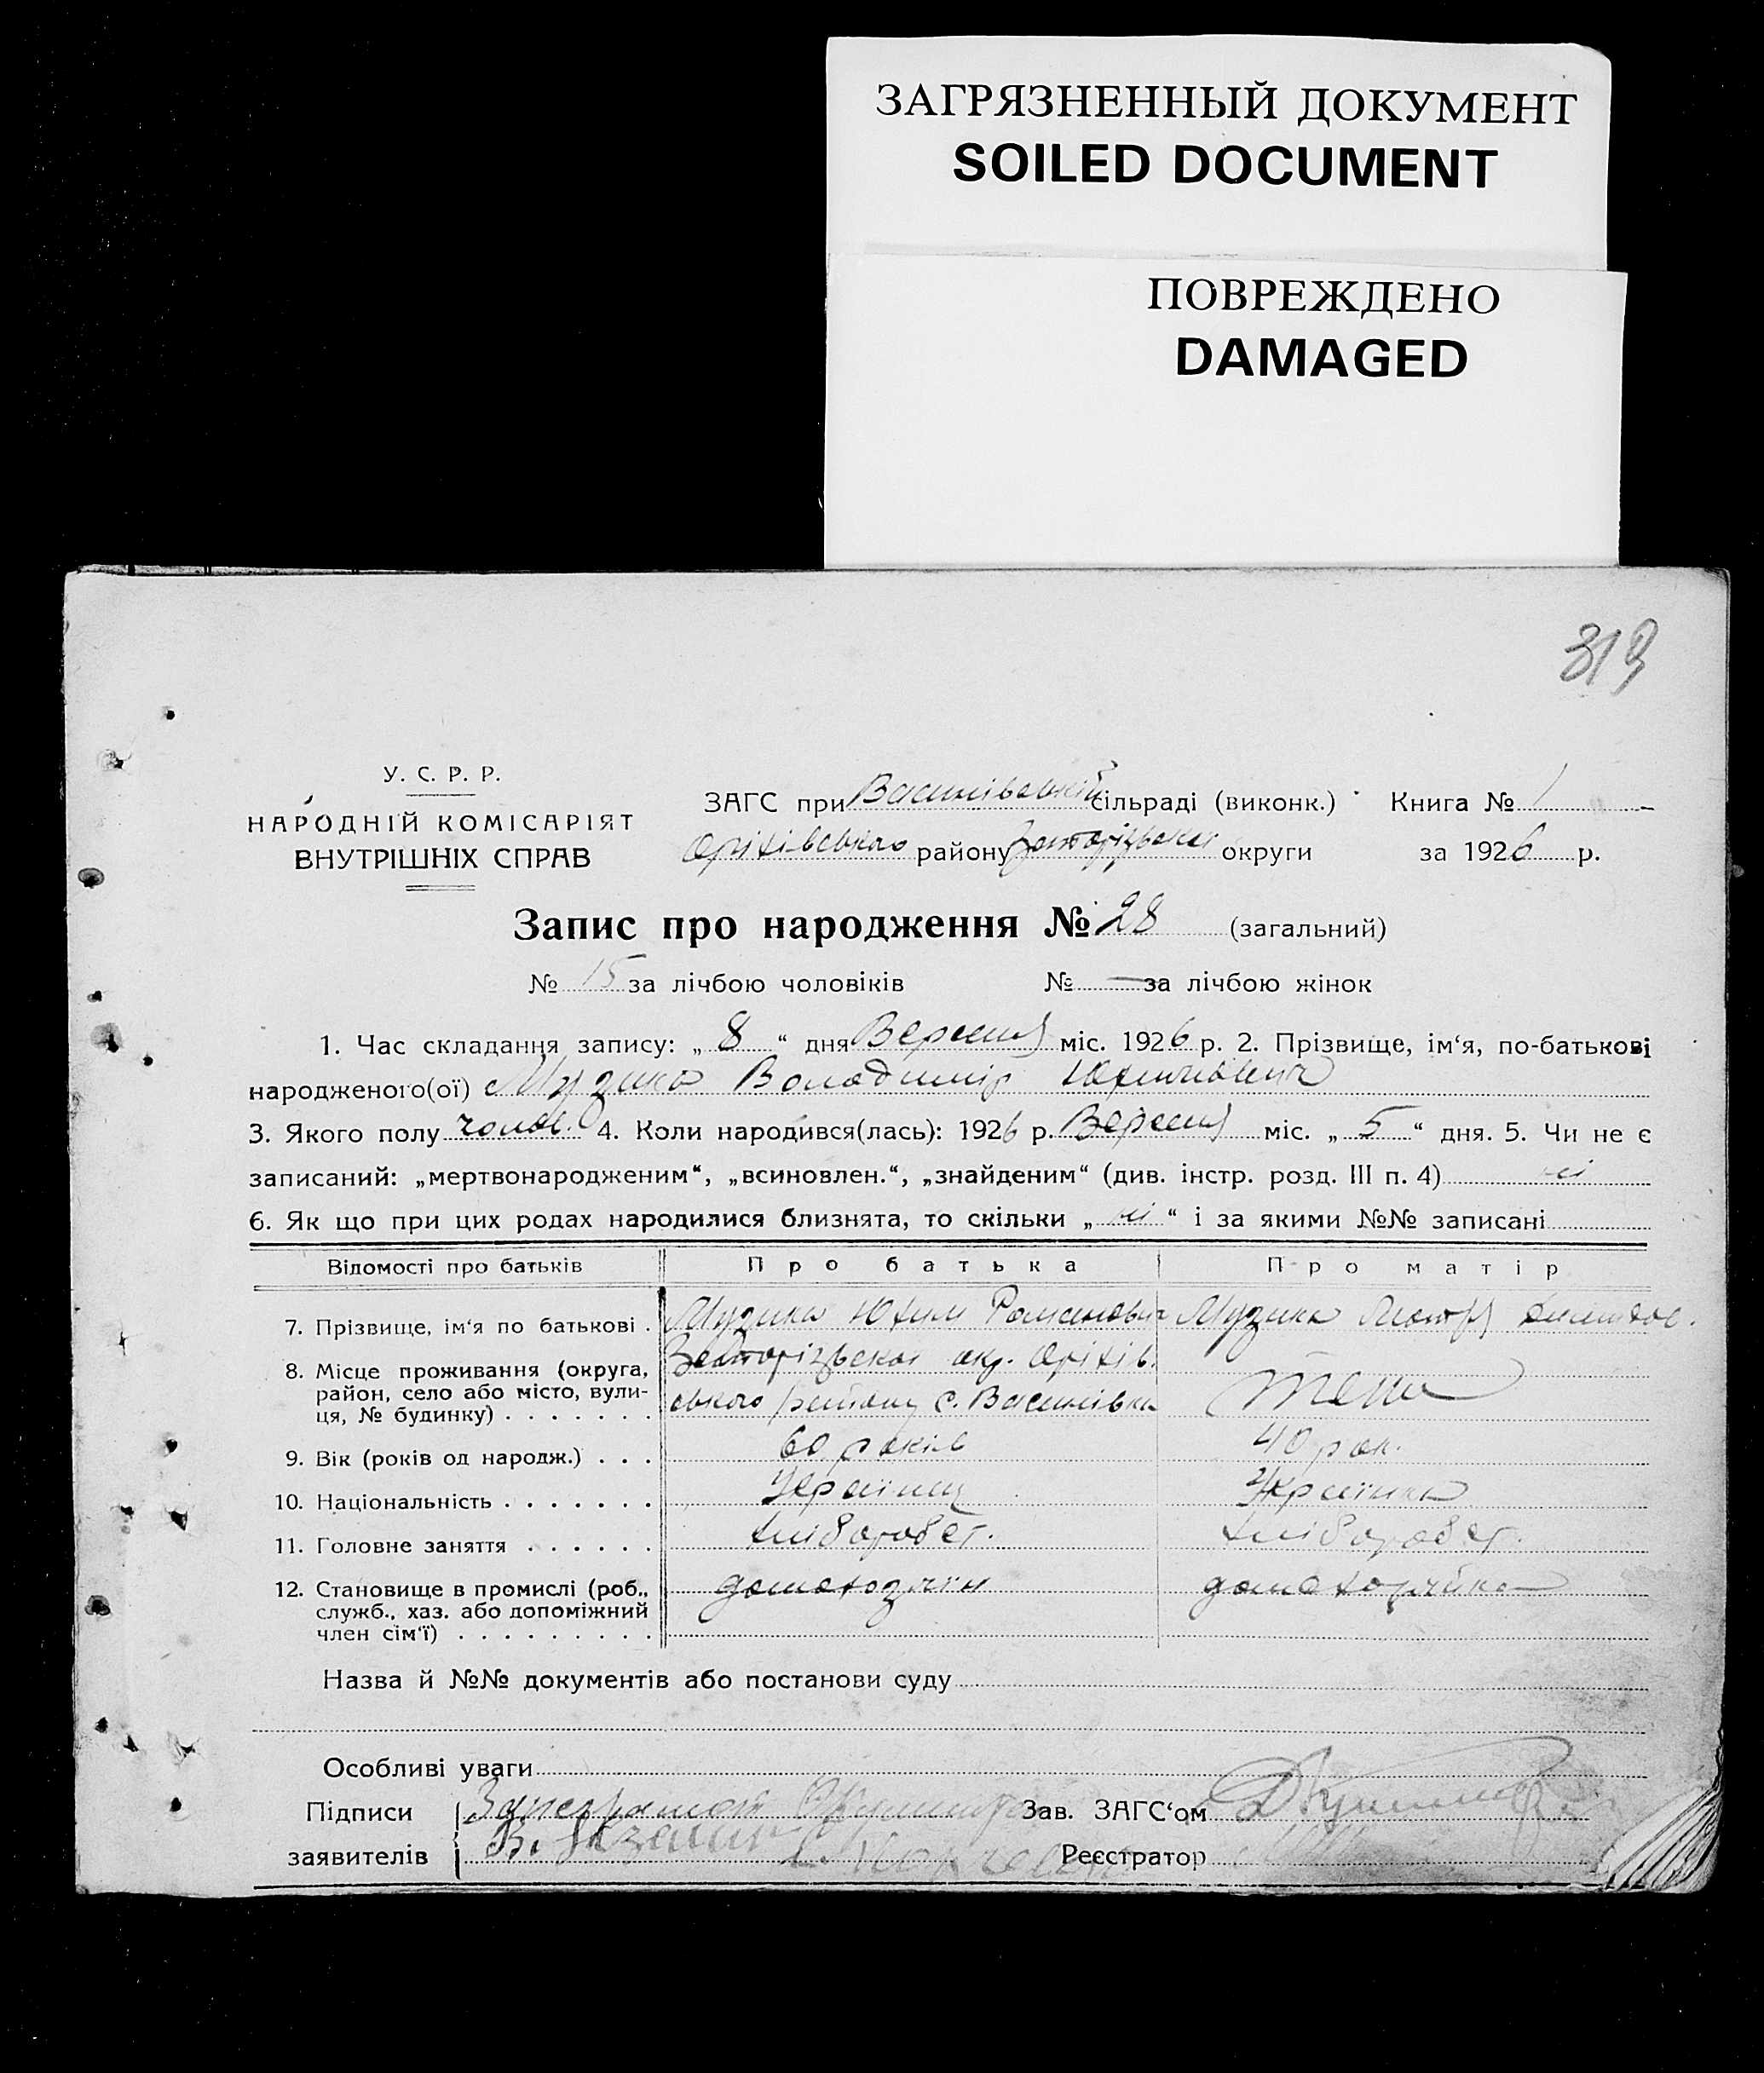 ЗАГРЯЗНЕННЫЙ ДОКУМЕНТ
SOILED DOCUMENT
ПОВРЕЖДЕНО
DAMAGED
319
У. С. Р. Р.
НАРОДНІЙ КОМІСАРІЯТ
ВНУТРІШНІХ СПРАВ
ЗАГС при Василівській сільраді (виконк.) Книга № 1
Оріхівського району Запорізької округи за 1926 р.
Запис про народження № 28 (загальний)
№ 15 за лічбою чоловіків № — за лічбою жінок
1. Час складання запису: „ 8 “ дня Вересня міс. 1926 р. 2. Прізвище, ім‘я, по-батькові
народженого(ої) Музика Володимір Юхимович
3. Якого полу чолов. 4. Коли народився(лась): 1926 р. Вересня міс. „ 5 “ дня. 5. Чи не є
записаний: „мертвонародженим“, „всиновлен.“, „знайденим“ (див. інстр. розд. III п. 4) ні
6. Як що при цих родах народилися близнята, то скільки „ ні “ і за якими №№ записані
Відомості про батьків Про батька Про матір
7. Прізвище, ім‘я по батькові . Музика Юхим Романович Музика
8. Місце проживання (округа, Запорізької окр. Оріхів-
район, село або місто, вули- ського району с. Василівка теж
ця, № будинку) . . . . . . .
9. Вік (років од народж.) . . . 60 років 40 рок.
10. Національність . . . . . . . Українец Українка
11. Головне заняття . . . . . . хліборобст. хліборобст.
12. Становище в промислі (роб., домохозяїн домохозяйка
служб., хаз. або допоміжний
член сім‘ї) . . . . . . . . .
Назва й №№ документів або постанови суду
Особливі уваги
Підписи Зав. ЗАГС‘ом
заявителів Реєстратор